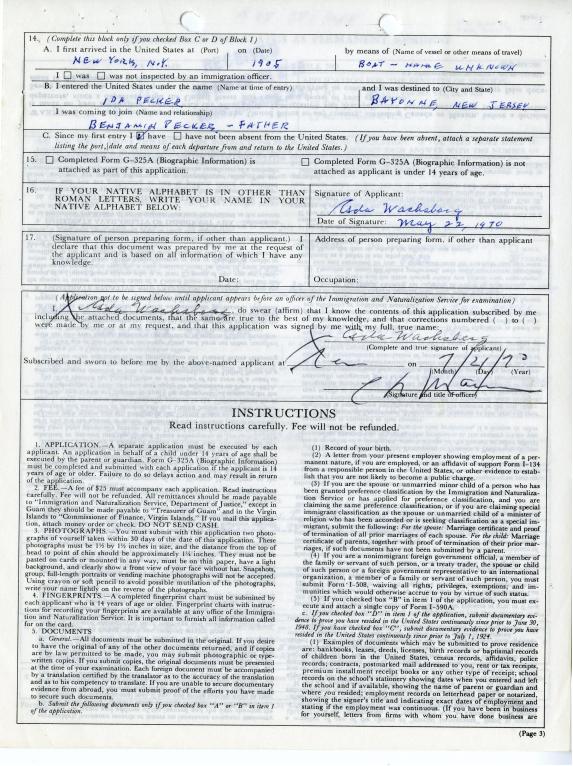 14. (Complete this block only if you checked Box C or D of Block 1)
A. I first arrived in the United States at (Port) on (Date) by means of (Name of vessel or other means of travel)
NEW YORK, N.Y. 1905 BOAT - NAME UNKNOWN
I ☐ was ☐ was not inspected by an immigration officer.
B. I entered the United States under the name (Name at time of entry) and I was destined to (City and State)
IDA PECKER BAYONNE, NEW JERSEY
I was coming to join (Name and relationship)
BENJAMIN PECKER - FATHER
C. Since my first entry I ☒ have ☐ have not been absent from the United States. (If you have been absent, attach a separate statement
listing the port, date and means of each departure from and return to the United States.)
15. ☐ Completed Form G-325A (Biographic Information) is
attached as part of this application.
☐ Completed Form G-325A (Biographic Information) is not
attached as applicant is under 14 years of age.
16. IF YOUR NATIVE ALPHABET IS IN OTHER THAN
ROMAN LETTERS, WRITE YOUR NAME IN YOUR
NATIVE ALPHABET BELOW:
Signature of Applicant:
Ida Wachsberg
Date of Signature: May 22, 1970
17. (Signature of person preparing form, if other than applicant.) I
declare that this document was prepared by me at the request of
the applicant and is based on all information of which I have any
knowledge.
Date:
Address of person preparing form, if other than applicant
Occupation:
(Application not to be signed below until applicant appears before an officer of the Immigration and Naturalization Service for examination)
I, Ida Wachsberg, do swear (affirm) that I know the contents of this application subscribed by me
including the attached documents, that the same are true to the best of my knowledge, and that corrections numbered ( ) to ( )
were made by me or at my request, and that this application was signed by me with my full, true name:
Ida Wachsberg
(Complete and true signature of applicant)
Subscribed and sworn to before me by the above-named applicant at on 7/21/70
(Month) (Day) (Year)
(Signature and title of officer)
INSTRUCTIONS
Read instructions carefully. Fee will not be refunded.
1. APPLICATION.—A separate application must be executed by each
applicant. An application in behalf of a child under 14 years of age shall be
executed by the parent or guardian. Form G-325A (Biographic Information)
must be completed and submitted with each application if the applicant is 14
years of age or older. Failure to do so delays action and may result in return
of the application.
2. FEE.—A fee of $25 must accompany each application. Read instructions
carefully. Fee will not be refunded. All remittances should be made payable
to "Immigration and Naturalization Service, Department of Justice," except in
Guam they should be made payable to "Treasurer of Guam" and in the Virgin
Islands to "Commissioner of Finance, Virgin Islands." If you mail this applica-
tion, attach money order or check. DO NOT SEND CASH.
3. PHOTOGRAPHS.—You must submit with this application two photo-
graphs of yourself taken within 30 days of the date of this application. These
photographs must be 1½ by 1½ inches in size, and the distance from the top of
head to point of chin should be approximately 1¼ inches. They must not be
pasted on cards or mounted in any way, must be on thin paper, have a light
background, and clearly show a front view of your face without hat. Snapshots,
group, full-length portraits or vending machine photographs will not be accepted.
Using crayon or soft pencil to avoid possible mutilation of the photographs,
write your name lightly on the reverse of the photographs.
4. FINGERPRINTS.—A completed fingerprint chart must be submitted by
each applicant who is 14 years of age or older. Fingerprint charts with instruc-
tions for recording your fingerprints are available at any office of the Immigra-
tion and Naturalization Service. It is important to furnish all information called
for on the card.
5. DOCUMENTS
a. General.—All documents must be submitted in the original. If you desire
to have the original of any of the other documents returned, and if copies
are by law permitted to be made, you may submit photographic or type-
written copies. If you submit copies, the original documents must be presented
at the time of your examination. Each foreign document must be accompanied
by a translation certified by the translator as to the accuracy of the translation
and as to his competency to translate. If you are unable to secure documentary
evidence from abroad, you must submit proof of the efforts you have made
to secure such documents.
b. Submit the following documents only if you checked box "A" or "B" in item 1
of the application.
(1) Record of your birth.
(2) A letter from your present employer showing employment of a per-
manent nature, if you are employed, or an affidavit of support Form I-134
from a responsible person in the United States, or other evidence to estab-
lish that you are not likely to become a public charge.
(3) If you are the spouse or unmarried minor child of a person who has
been granted preference classification by the Immigration and Naturaliza-
tion Service or has applied for preference classification, and you are
claiming the same preference classification, or if you are claiming special
immigrant classification as the spouse or unmarried child of a minister of
religion who has been accorded or is seeking classification as a special im-
migrant, submit the following: For the spouse: Marriage certificate and proof
of termination of all prior marriages of each spouse. For the child: Marriage
certificate of parents, together with proof of termination of their prior mar-
riages, if such documents have not been submitted by a parent.
(4) If you are a nonimmigrant foreign government official, a member of
the family or servant of such person, or a treaty trader, the spouse or child
of such person or a foreign government representative to an international
organization, a member of a family or servant of such person, you must
submit Form I-508, waiving all rights, privileges, exemptions; and im-
munities which would otherwise accrue to you by virtue of such status.
(5) If you checked box "B" in item 1 of the application, you must ex-
ecute and attach a single copy of Form I-590A.
c. If you checked box "D" in item 1 of the application, submit documentary evi-
dence to prove you have resided in the United States continuously since prior to June 30,
1948. If you have checked box "C", submit documentary evidence to prove you have
resided in the United States continuously since prior to July 1, 1924.
(1) Examples of documents which may be submitted to prove residence
are: bankbooks, leases, deeds, licenses, birth records or baptismal records
of children born in the United States, census records, affidavits, police
records; contracts, postmarked mail addressed to you, rent or tax receipts,
premium installment receipt books or any other type of receipt; school
records on the school's stationery showing dates when you entered and left
the school and if available, showing the name of parent or guardian and
where you resided; employment records on letterhead paper or notarized,
showing the signer's title and indicating exact dates of employment and
stating if the employment was continuous. (If you have been in business
for yourself, letters from firms with whom you have done business are
(Page 3)